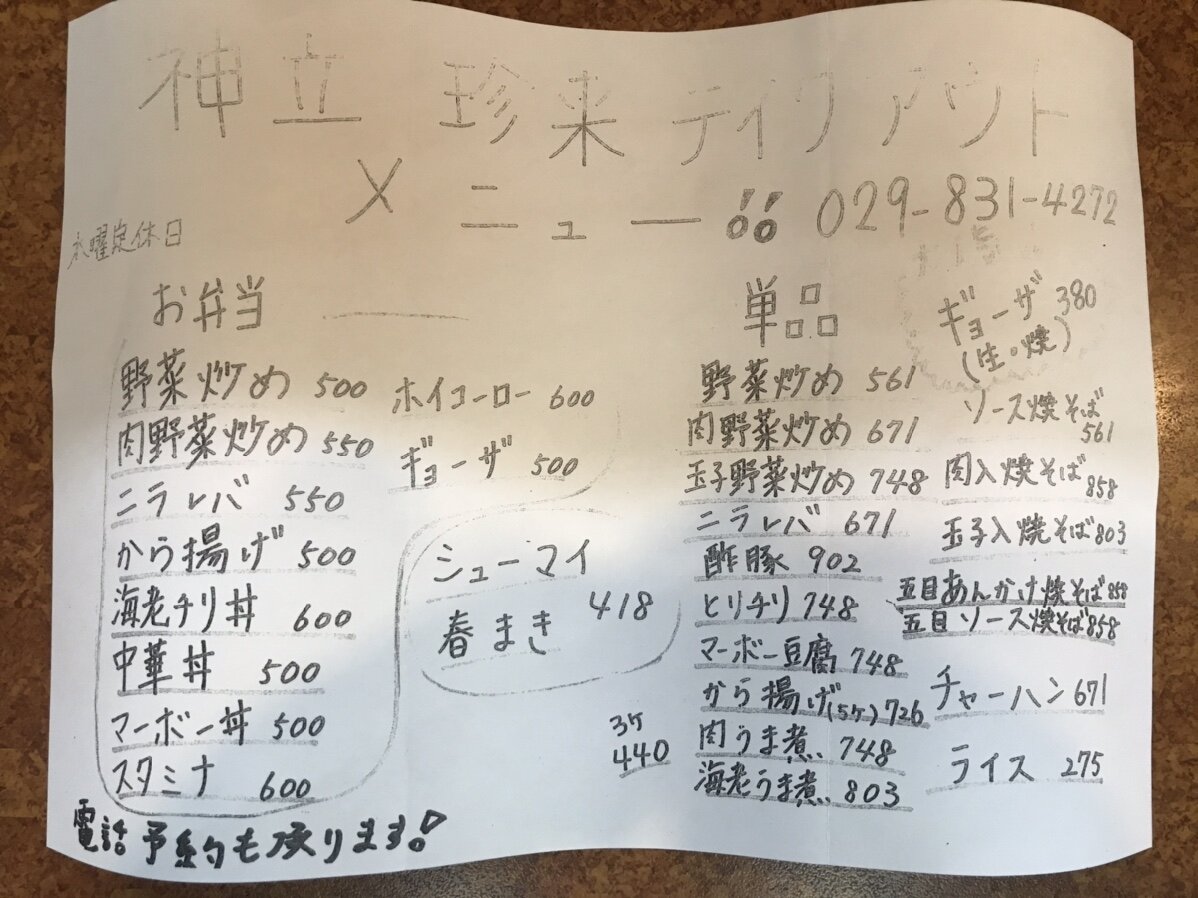 神立 珍来 テイクアウト
メニュー!! 029-831-4272
水曜定休日
お弁当
野菜炒め 500
肉野菜炒め 550
ニラレバ 550
から揚げ 500
海老チリ丼 600
中華丼 500
マーボー丼 500
スタミナ 600
ホイコーロー 600
ギョーザ 500
シューマイ
418
春まき
3ケ
440
単品
野菜炒め 561
肉野菜炒め 671
玉子野菜炒め 748
ニラレバ 671
酢豚 902
とりチリ 748
マーボー豆腐 748
から揚げ(5ケ) 726
肉うま煮 748
海老うま煮 803
ギョーザ 380
(生・焼)
ソース焼そば
561
肉入焼そば 858
玉子入焼そば 803
五目あんかけ焼そば 858
五目ソース焼そば 858
チャーハン 671
ライス 275
電話予約も承ります!